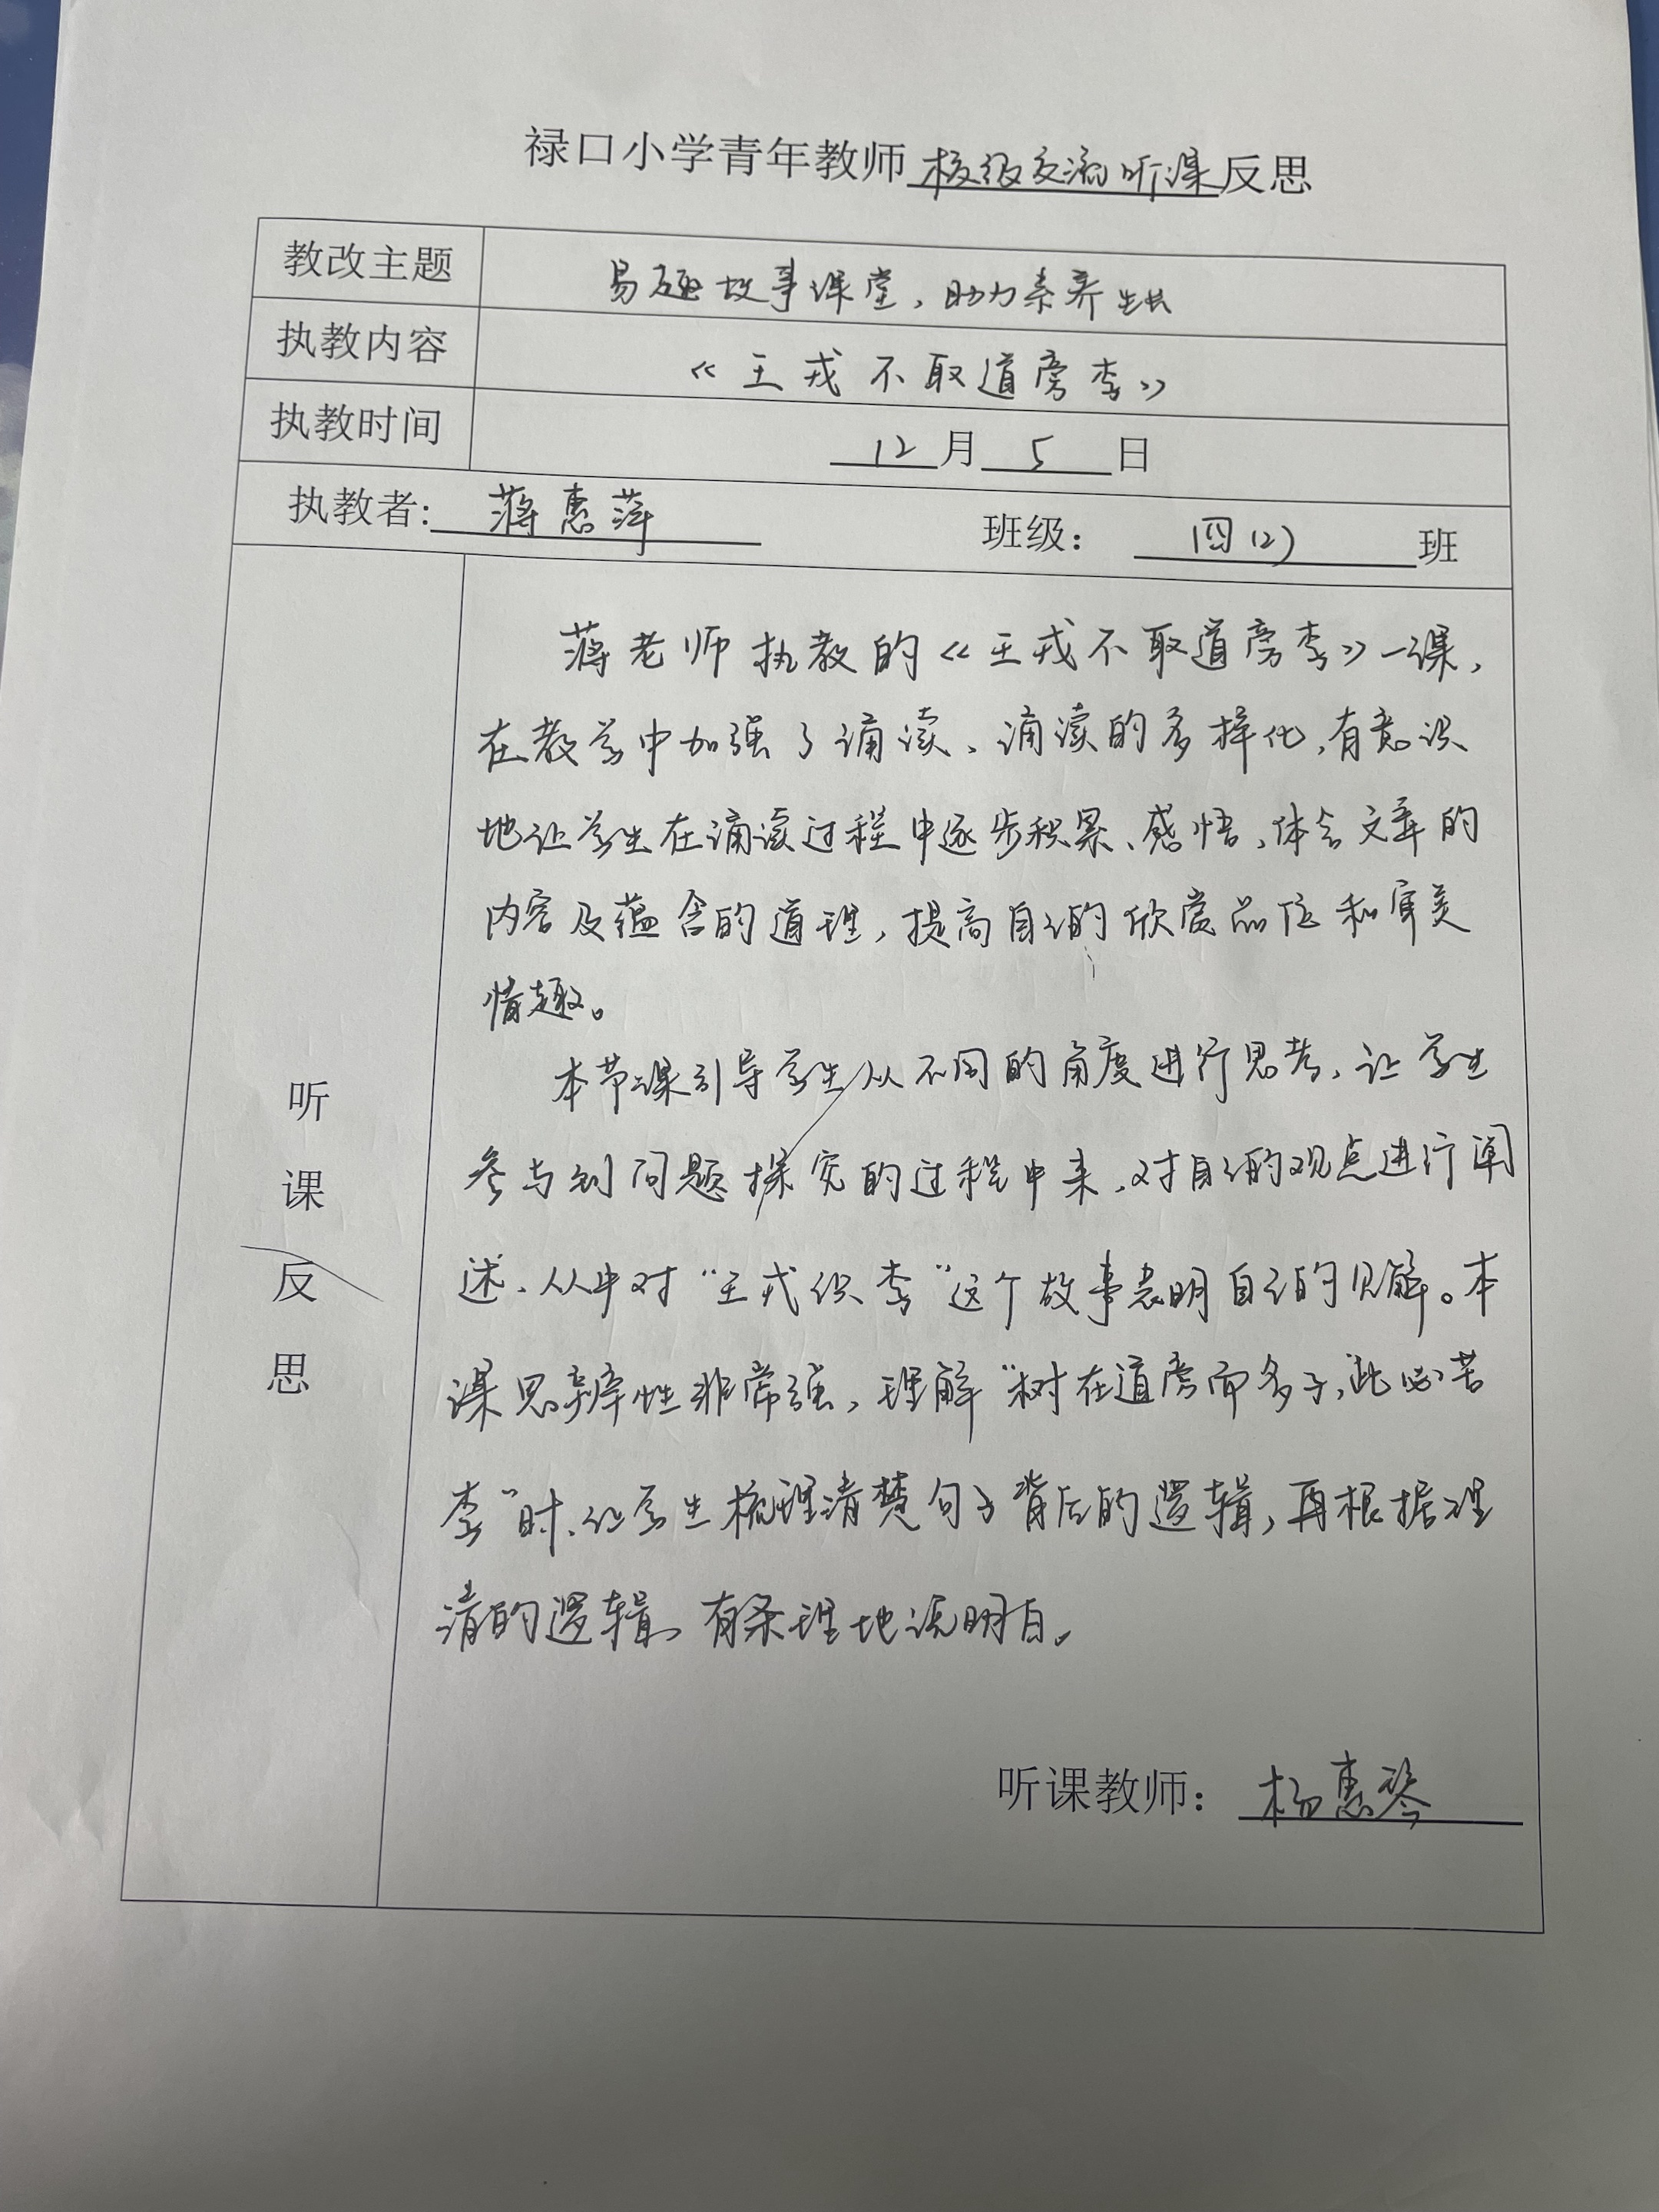 禄口小学青年教师校级交流听课反思
教改主题 易趣故事课堂，助力素养生长
执教内容 《王戎不取道旁李》
执教时间 12月5日
执教者：蒋惠萍 班级：四(2)班
听课反思
蒋老师执教的《王戎不取道旁李》一课，
在教学中加强了诵读、诵读的多样化，有意识
地让学生在诵读过程中逐步积累、感悟、体会文章的
内容及蕴含的道理，提高自己的欣赏品位和审美
情趣。
本节课引导学生从不同的角度进行思考，让学生
参与到问题探究的过程中来，对自己的观点进行阐
述，从中对“王戎识李”这个故事表明自己的见解。本
课思辨性非常强，理解“树在道旁而多子，此必苦
李”时，让学生梳理清楚句子背后的逻辑，再根据理
清的逻辑，有条理地说明白。
听课教师：杨惠琴